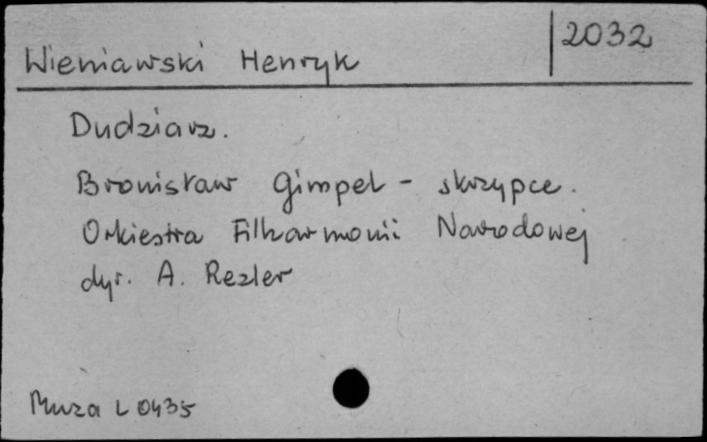 Wieniawski Henryk
2032
Dudziarz.
Bronisław Gimpel - skrzypce.
Orkiestra Filharmonii Narodowej
dyr. A. Rezler
Muza L 0435